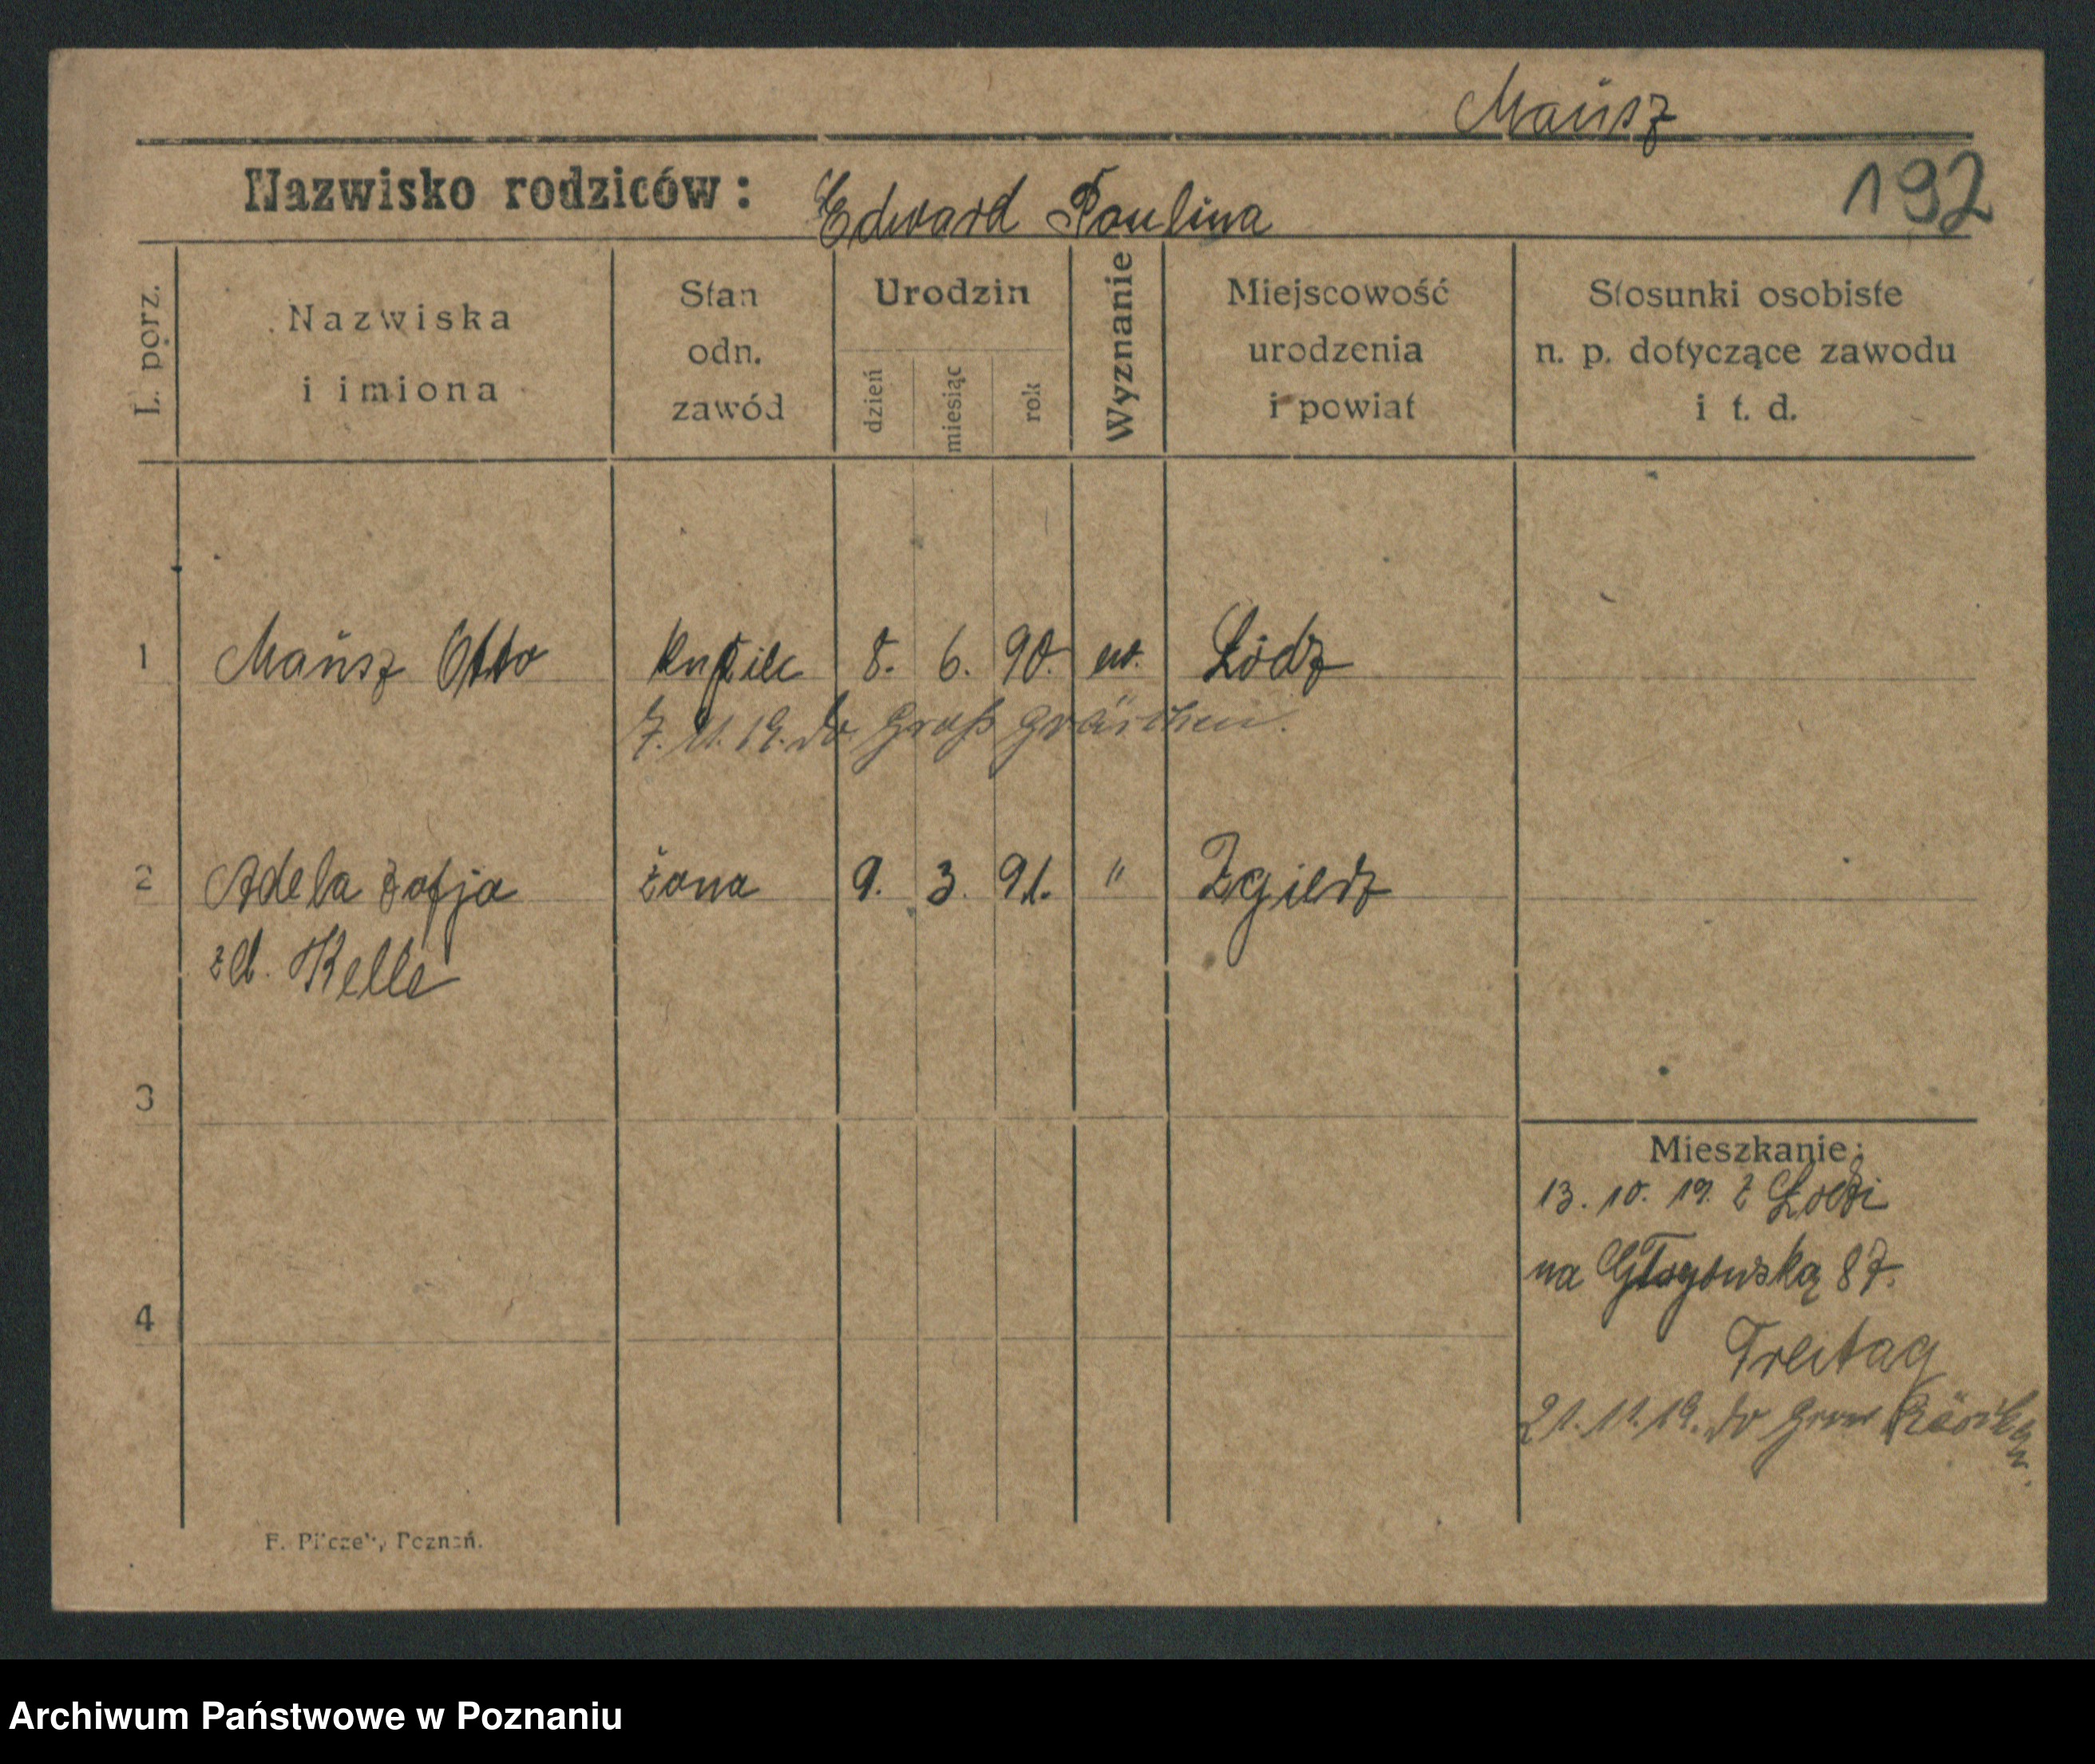 Maüsz
Nazwisko rodziców: Edward Paulina
192
L. porz.
Nazwiska
i imiona
Stan
odn.
zawód
Urodzin
dzień
miesiąc
rok
Wyznanie
Miejscowość
urodzenia
i powiat
Stosunki osobiste
n. p. dotyczące zawodu
i t. d.
1 Maüsz Otto kupiec 8. 6. 90. ew. Łódz
7. 11. 19. do Groß
2 Adela Zofja żona 9. 3. 91. " Zgierz
zd. Kelle
3
Mieszkanie:
13. 10. 19. z Łodzi
na Głogowską 87.
4
Freitag
21. 11. 19. do
F. Pilczek, Poznań.
Archiwum Państwowe w Poznaniu